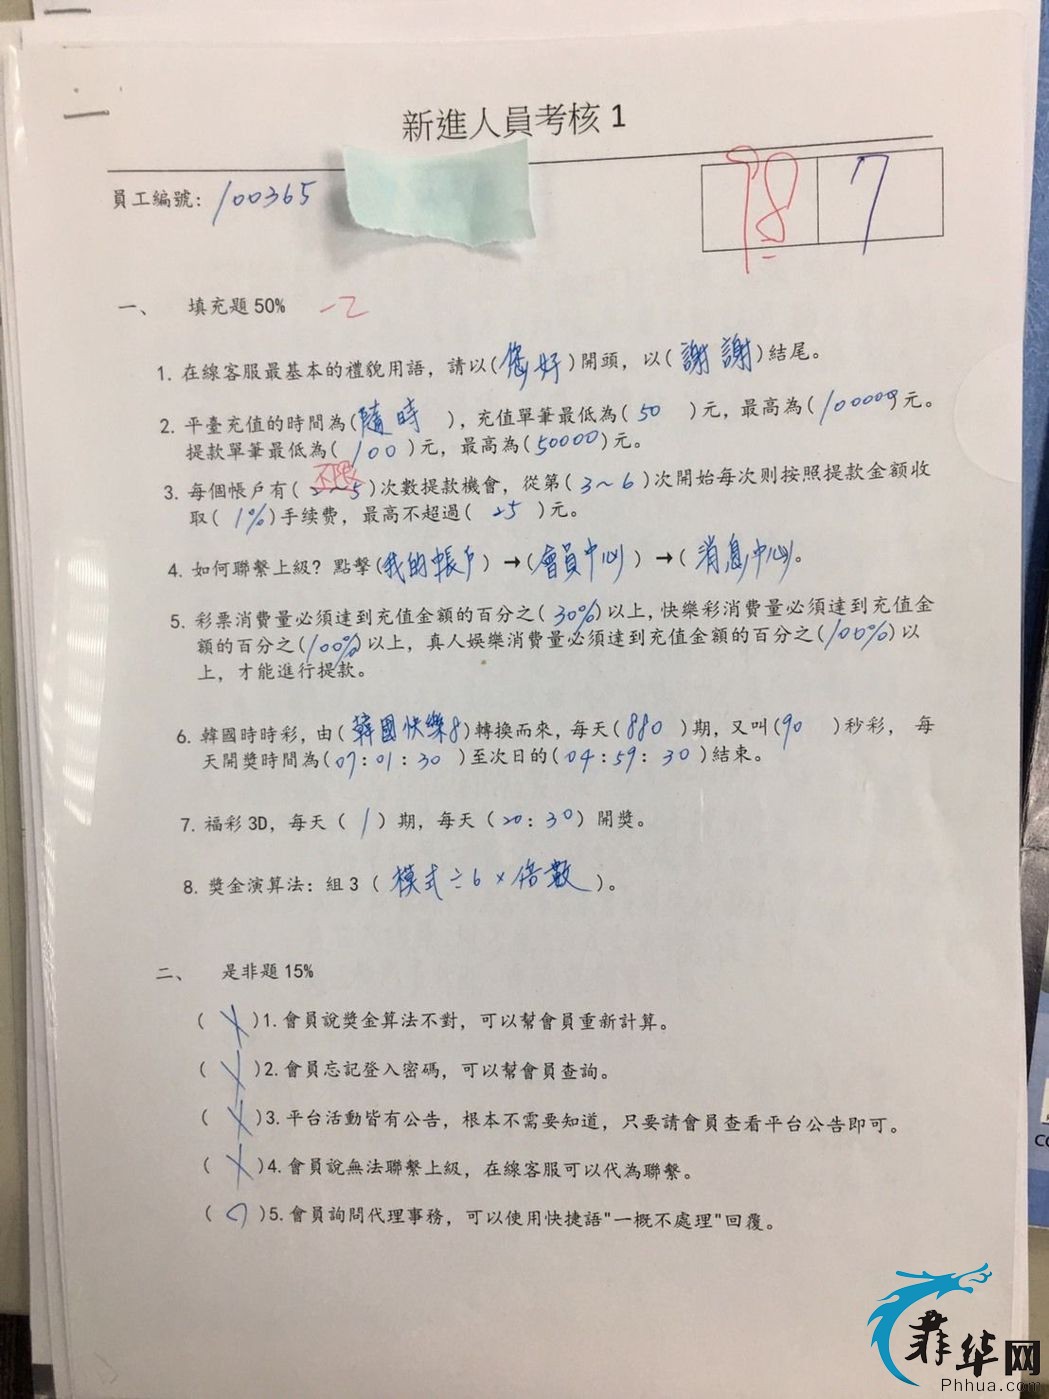 新進人員考核 1
員工編號: 100365
98 7
一、 填充題 50% -2
1. 在線客服最基本的禮貌用語，請以(您好)開頭，以(謝謝)結尾。
2. 平臺充值的時間為(隨時)，充值單筆最低為(50)元，最高為(100000)元。
提款單筆最低為(100)元，最高為(50000)元。
3. 每個帳戶有(不限)次數提款機會，從第(3~6)次開始每次则按照提款金額收
取(1%)手续費，最高不超過(25)元。
4. 如何聯繫上級? 點擊(我的帳戶)→(會員中心)→(消息中心)。
5. 彩票消費量必須達到充值金額的百分之(30%)以上,快樂彩消費量必須達到充值金
額的百分之(100%)以上，真人娛樂消費量必須達到充值金額的百分之(100%)以
上，才能進行提款。
6. 韓國時時彩，由(韓國快樂8)轉換而來，每天(880)期，又叫(90)秒彩， 每
天開獎時間為(07:01:30)至次日的(04:59:30)結束。
7. 福彩 3D，每天（1）期，每天（20:30）開獎。
8. 獎金演算法: 組 3 (模式÷6×倍數)。
二、 是非題 15%
(X)1. 會員說獎金算法不對，可以幫會員重新計算。
(X)2. 會員忘記登入密碼，可以幫會員查詢。
(X)3. 平台活動皆有公告，根本不需要知道，只要請會員查看平台公告即可。
(X)4. 會員說無法聯繫上級，在線客服可以代為聯繫。
( )5. 會員詢問代理事務，可以使用快捷語"一概不處理"回覆。
菲华网
Phhua.com